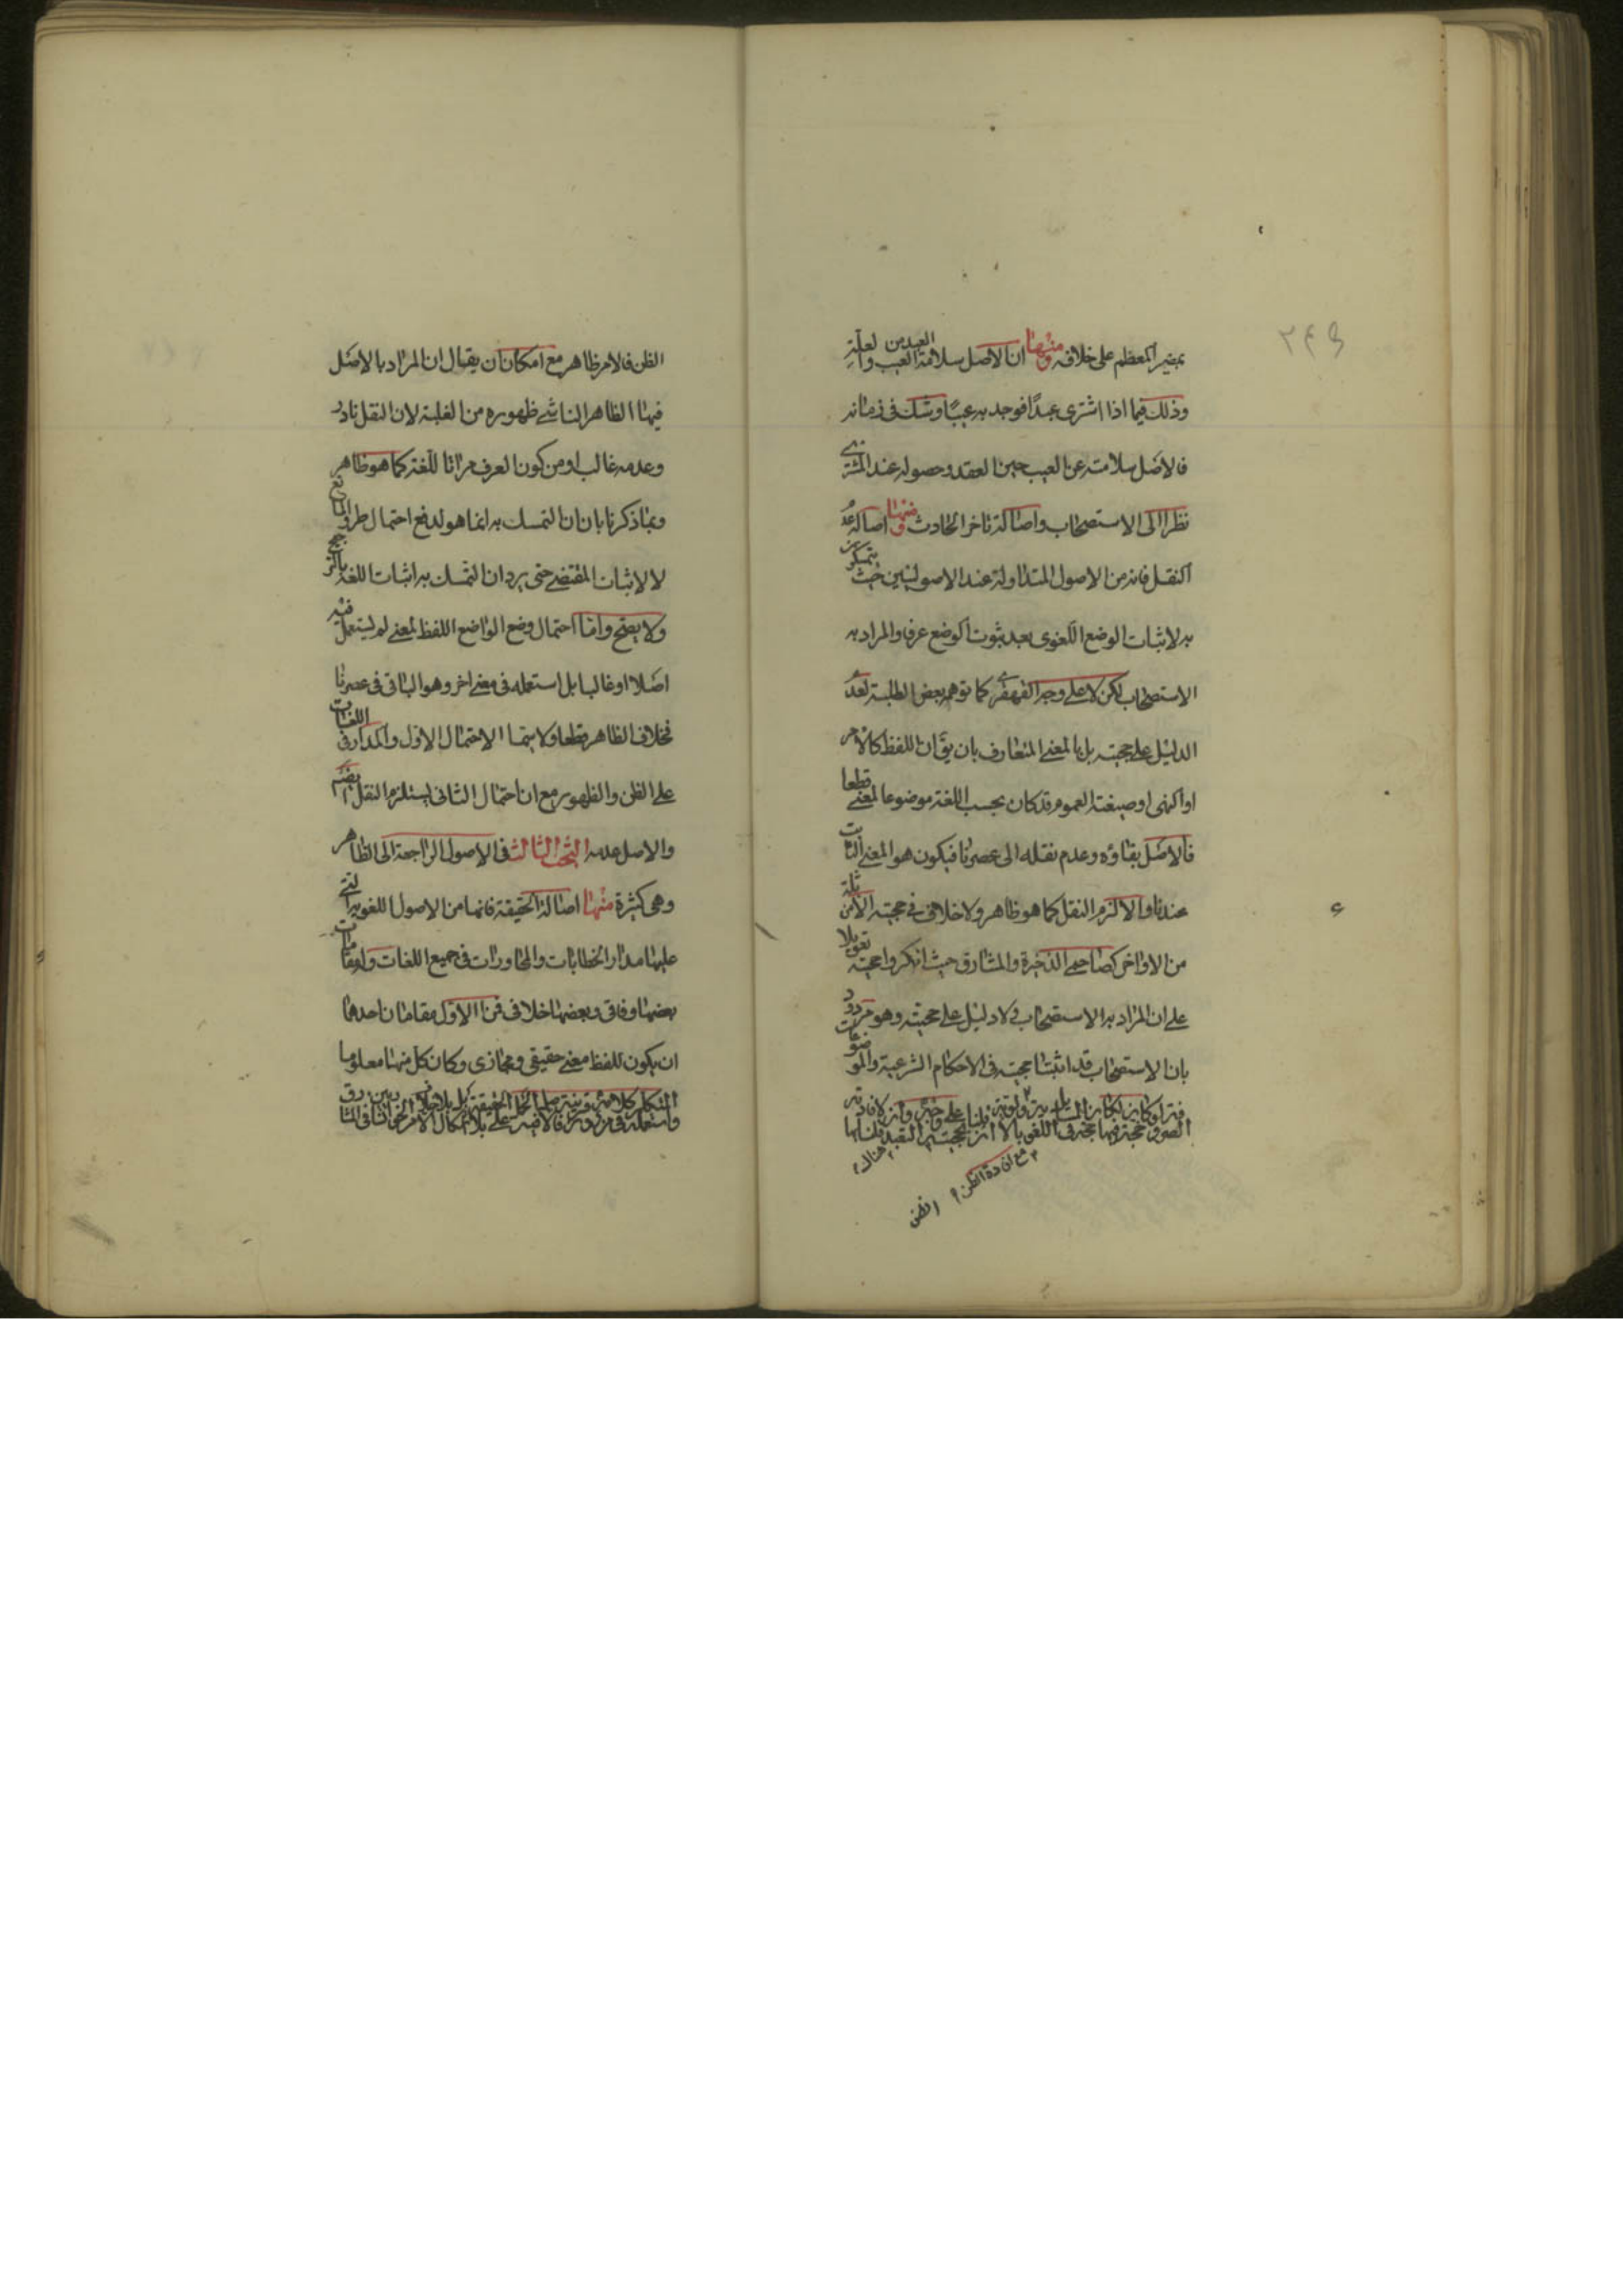 ۲۴۹
بمصير المعظم على خلافه ومنها ان الاصل سلامة العبد من العيب والعلة
وذلك فيما اذا اشترى عبدًا فوجد به عيبًا وشك فى زمانه
فالاصل سلامته عن العيب حين العقد وحصوله عند المشترى
نظرا الى الاستصحاب واصالة تاخر الحادث ومنها اصالة عدم
النقل فانه من الاصول المتداولة عند الاصوليين حيث يتمسكون
به لاثبات الوضع اللغوى بعد ثبوت الوضع عرفا والمراد به
الاستصحاب لكن لا على وجه القهقرى كما توهم بعض الطلبة لعدم
الدليل على حجيته بل بالمعنى المتعارف بان يقال ان اللفظ كالامر
او النهى او صيغة العموم قد كان بحسب اللغة موضوعا لمعنى قطعا
فالاصل بقاؤه وعدم نقله الى عصرنا فيكون هو المعنى الثابت
عندنا والا لزم النقل كما هو ظاهر ولا خلاف فى حجيته الا من ثلة
من الاواخر كصاحبى الذخيرة والمشارق حيث انكروا حجيته تعويلا
على ان المراد به الاستصحاب ولا دليل على حجيته وهو مردود
بان الاستصحاب قد اثبتنا حجيته فى الاحكام الشرعية والموضوعات
مع افادة الظن
هناك
الظن
الظن فالامر ظاهر مع امكان ان يقال ان المراد بالاصل
فيها الظاهر الناشى ظهوره من الغلبة لان النقل نادر
وعدمه غالب او من كون العرف مراتا للغة كما هو ظاهر
وبما ذكرنا بان ان التمسك به انما هو لدفع احتمال طرو المانع
لا لاثبات المقتضى حتى يرد ان التمسك به اثبات اللغة بالترجيح
ولا يصح واما احتمال وضع الواضع اللفظ لمعنى لم يستعمل فيه
اصلا او غالبا بل استعمله فى معنى اخر وهو الباقى فى عصرنا
فخلاف الظاهر قطعا ولا سيما الاحتمال الاول والمدار فى اللغات
على الظن والظهور مع ان احتمال الثانى يستلزم النقل ايضا
والاصل عدمه البحث الثالث فى الاصول الراجعة الى الظاهر
وهى كثيرة منها اصالة الحقيقة فانها من الاصول اللغوية التى
عليها مدار الخطابات والمحاورات فى جميع اللغات ولها مقامات
بعضها وفاقى وبعضها خلافى فمن الاول مقامان احدهما
ان يكون للفظ معنى حقيقى ومجازى وكان كل منهما معلوما